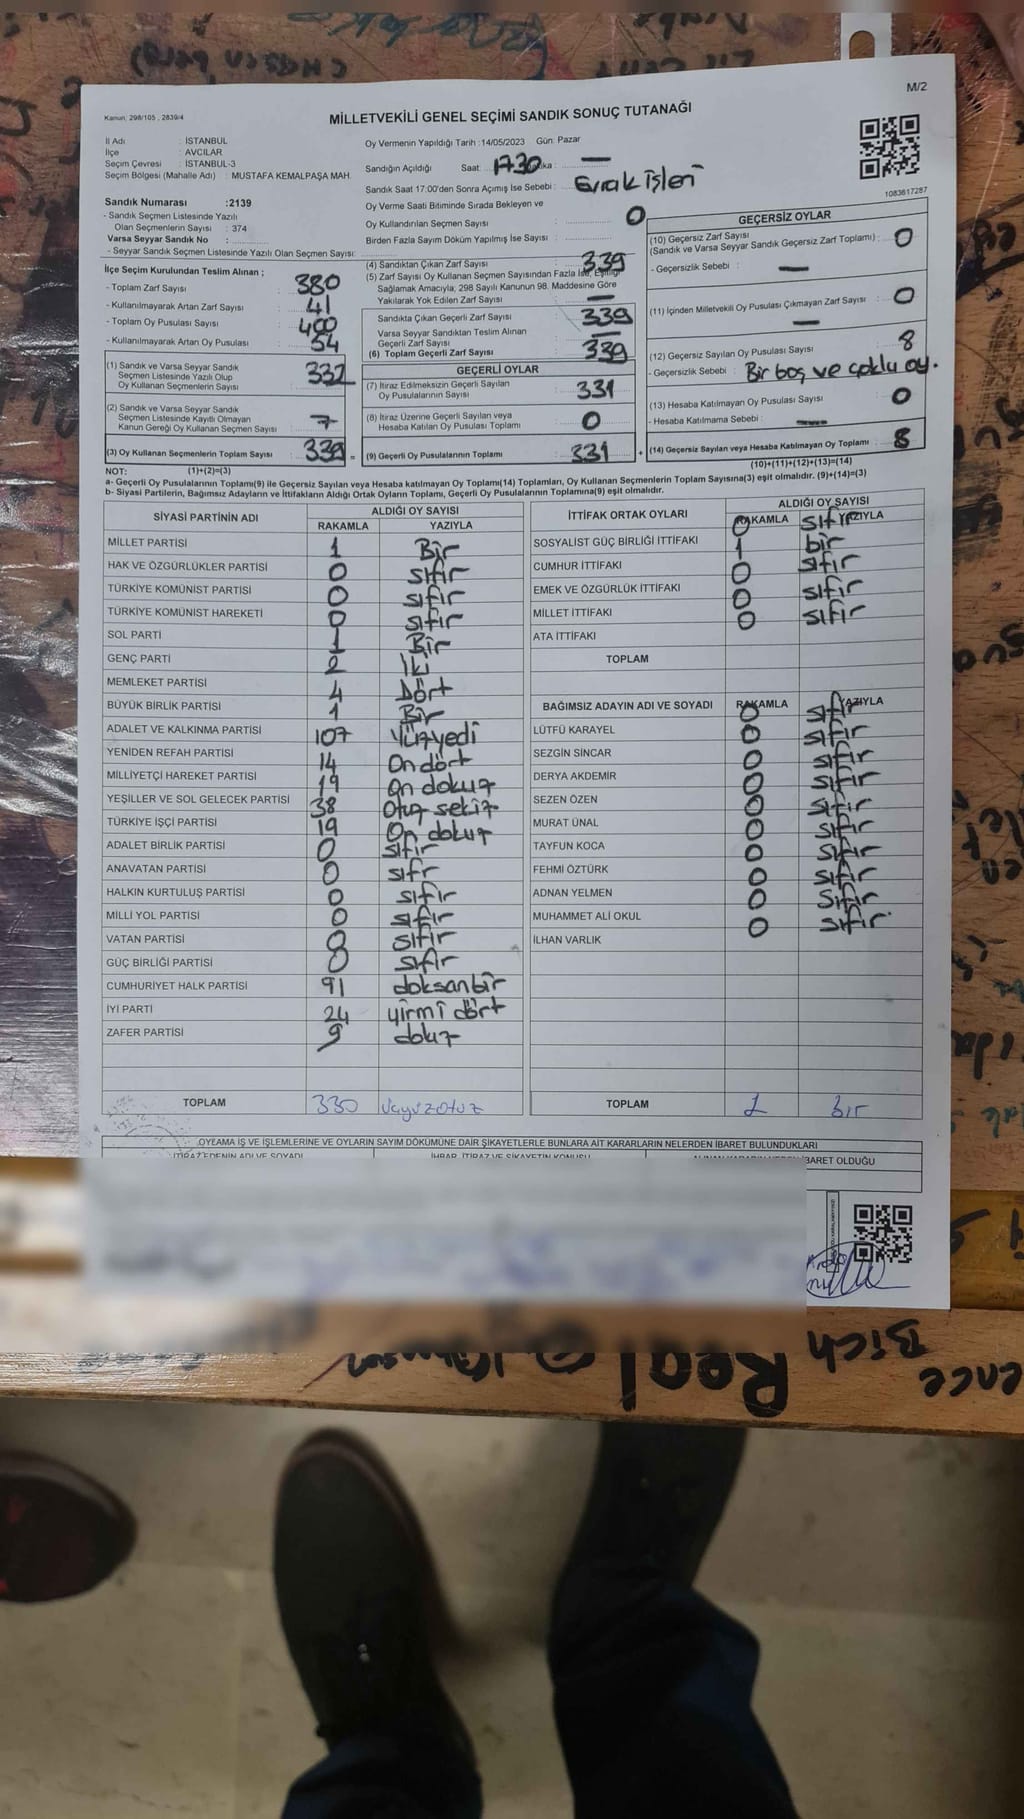 M/2
Kanun; 298/105 , 2839/4
MİLLETVEKİLİ GENEL SEÇİMİ SANDIK SONUÇ TUTANAĞI
İl Adı : İSTANBUL
İlçe : AVCILAR
Seçim Çevresi : İSTANBUL-3
Seçim Bölgesi (Mahalle Adı) : MUSTAFA KEMALPAŞA MAH.
Oy Vermenin Yapıldığı Tarih :14/05/2023 Gün: Pazar
Sandığın Açıldığı Saat: 1730
Sandık Saat 17:00'den Sonra Açımış İse Sebebi : Evrak işleri
Oy Verme Saati Bitiminde Sırada Bekleyen ve
Oy Kullandırılan Seçmen Sayısı : 0
Birden Fazla Sayım Döküm Yapılmış İse Sayısı :
1083617287
Sandık Numarası :2139
- Sandık Seçmen Listesinde Yazılı
Olan Seçmenlerin Sayısı : 374
Varsa Seyyar Sandık No :
- Seyyar Sandık Seçmen Listesinde Yazılı Olan Seçmen Sayısı:
İlçe Seçim Kurulundan Teslim Alınan ;
- Toplam Zarf Sayısı : 380
- Kullanılmayarak Artan Zarf Sayısı : 41
- Toplam Oy Pusulası Sayısı : 400
- Kullanılmayarak Artan Oy Pusulası : 54
(1) Sandık ve Varsa Seyyar Sandık
Seçmen Listesinde Yazılı Olup
Oy Kullanan Seçmenlerin Sayısı : 332
(2) Sandık ve Varsa Seyyar Sandık
Seçmen Listesinde Kayıtlı Olmayan
Kanun Gereği Oy Kullanan Seçmen Sayısı : 7
(3) Oy Kullanan Seçmenlerin Toplam Sayısı : 339 =
(4) Sandıktan Çıkan Zarf Sayısı : 339
(5) Zarf Sayısı Oy Kullanan Seçmen Sayısından Fazla İse, Eşitliği
Sağlamak Amacıyla, 298 Sayılı Kanunun 98. Maddesine Göre
Yakılarak Yok Edilen Zarf Sayısı : —
Sandıkta Çıkan Geçerli Zarf Sayısı : 339
Varsa Seyyar Sandıktan Teslim Alınan
Geçerli Zarf Sayısı : —
(6) Toplam Geçerli Zarf Sayısı : 339
GEÇERLİ OYLAR
(7) İtiraz Edilmeksizin Geçerli Sayılan
Oy Pusulalarının Sayısı : 331
(8) İtiraz Üzerine Geçerli Sayılan veya
Hesaba Katılan Oy Pusulası Toplamı : 0
(9) Geçerli Oy Pusulalarının Toplamı : 331 +
GEÇERSİZ OYLAR
(10) Geçersiz Zarf Sayısı
(Sandık ve Varsa Seyyar Sandık Geçersiz Zarf Toplamı) : 0
- Geçersizlik Sebebi : —
(11) İçinden Milletvekili Oy Pusulası Çıkmayan Zarf Sayısı : 0
—
(12) Geçersiz Sayılan Oy Pusulası Sayısı : 8
- Geçersizlik Sebebi : Bir boş ve çoklu oy.
(13) Hesaba Katılmayan Oy Pusulası Sayısı : 0
- Hesaba Katılmama Sebebi : —
(14) Geçersiz Sayılan veya Hesaba Katılmayan Oy Toplamı : 8
NOT: (1)+(2)=(3)
(10)+(11)+(12)+(13)=(14)
a- Geçerli Oy Pusulalarının Toplamı(9) ile Geçersiz Sayılan veya Hesaba katılmayan Oy Toplamı(14) Toplamları, Oy Kullanan Seçmenlerin Toplam Sayısına(3) eşit olmalıdır. (9)+(14)=(3)
b- Siyasi Partilerin, Bağımsız Adayların ve İttifakların Aldığı Ortak Oyların Toplamı, Geçerli Oy Pusulalarının Toplamına(9) eşit olmalıdır.
SİYASİ PARTİNİN ADI ALDIĞI OY SAYISI
RAKAMLA YAZIYLA
MİLLET PARTİSİ 1 Bir
HAK VE ÖZGÜRLÜKLER PARTİSİ 0 sıfır
TÜRKİYE KOMÜNİST PARTİSİ 0 sıfır
TÜRKİYE KOMÜNİST HAREKETİ 0 sıfır
SOL PARTİ 1 Bir
GENÇ PARTİ 2 İki
MEMLEKET PARTİSİ 4 Dört
BÜYÜK BİRLİK PARTİSİ 1 Bir
ADALET VE KALKINMA PARTİSİ 107 Yüzyedi
YENİDEN REFAH PARTİSİ 14 On dört
MİLLİYETÇİ HAREKET PARTİSİ 19 On dokuz
YEŞİLLER VE SOL GELECEK PARTİSİ 38 Otuz sekiz
TÜRKİYE İŞÇİ PARTİSİ 19 On dokuz
ADALET BİRLİK PARTİSİ 0 sıfır
ANAVATAN PARTİSİ 0 sıfır
HALKIN KURTULUŞ PARTİSİ 0 sıfır
MİLLİ YOL PARTİSİ 0 sıfır
VATAN PARTİSİ 0 sıfır
GÜÇ BİRLİĞİ PARTİSİ 0 sıfır
CUMHURİYET HALK PARTİSİ 91 doksanbir
İYİ PARTİ 24 yirmi dört
ZAFER PARTİSİ 9 dokuz
TOPLAM 330 üçyüzotuz
İTTİFAK ORTAK OYLARI ALDIĞI OY SAYISI
RAKAMLA YAZIYLA
SOSYALİST GÜÇ BİRLİĞİ İTTİFAKI 0 sıfır
CUMHUR İTTİFAKI 1 bir
EMEK VE ÖZGÜRLÜK İTTİFAKI 0 sıfır
MİLLET İTTİFAKI 0 sıfır
ATA İTTİFAKI 0 sıfır
TOPLAM
BAĞIMSIZ ADAYIN ADI VE SOYADI RAKAMLA YAZIYLA
LÜTFÜ KARAYEL 0 sıfır
SEZGİN SİNCAR 0 sıfır
DERYA AKDEMİR 0 sıfır
SEZEN ÖZEN 0 sıfır
MURAT ÜNAL 0 sıfır
TAYFUN KOCA 0 sıfır
FEHMİ ÖZTÜRK 0 sıfır
ADNAN YELMEN 0 sıfır
MUHAMMET ALİ OKUL 0 sıfır
İLHAN VARLIK 0 sıfır
TOPLAM 1 bir
OYLAMA İŞ VE İŞLEMLERİNE VE OYLARIN SAYIM DÖKÜMÜNE DAİR ŞİKAYETLERLE BUNLARA AİT KARARLARIN NELERDEN İBARET BULUNDUKLARI
İTİRAZ EDENİN ADI VE SOYADI İHBAR, İTİRAZ VE ŞİKAYETİN KONUSU ALINAN KARARIN NEDEN İBARET OLDUĞU
Real
Bich
ence